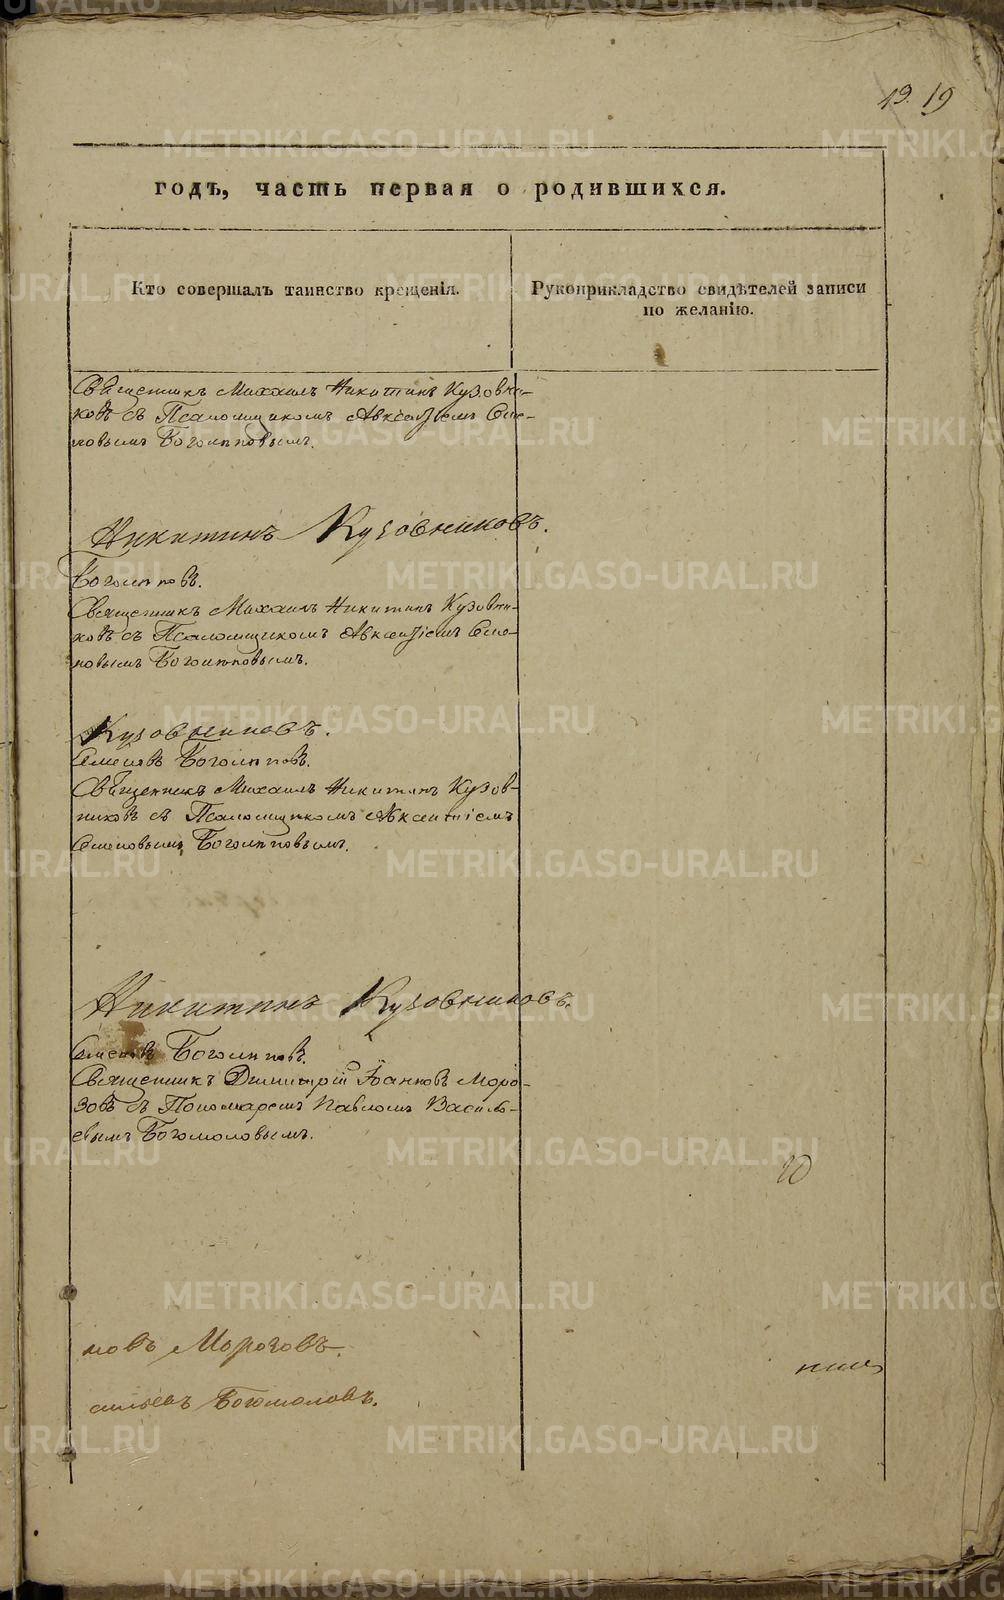 19. 19
годъ, часть первая о родившихся.
Кто совершалъ таинство крещенія.
Рукоприкладство свидѣтелей записи
по желанію.
Священникъ Михаилъ Никитинъ Кузовни-
ковъ съ Псаломщикомъ Авксентіемъ Семе-
новымъ Боголѣповымъ.
Никитинъ Кузовниковъ.
Боголѣповъ.
Священникъ Михаилъ Никитинъ Кузовни-
ковъ съ Псаломщикомъ Авксентіемъ Семе-
новымъ Боголѣповымъ.
Кузовниковъ.
Семеновъ Боголѣповъ.
Священникъ Михаилъ Никитинъ Кузов-
никовъ съ Псаломщикомъ Авксентіемъ
Семеновымъ Боголѣповымъ.
Никитинъ Кузовниковъ.
Семеновъ Боголѣповъ.
Священникъ Димитрій Іоанновъ Моро-
зовъ съ Пономаремъ Павломъ Василь-
евымъ Богомоловымъ.
20
новъ Морозовъ.
сильевъ Богомоловъ.
METRIKI.GASO-URAL.RU